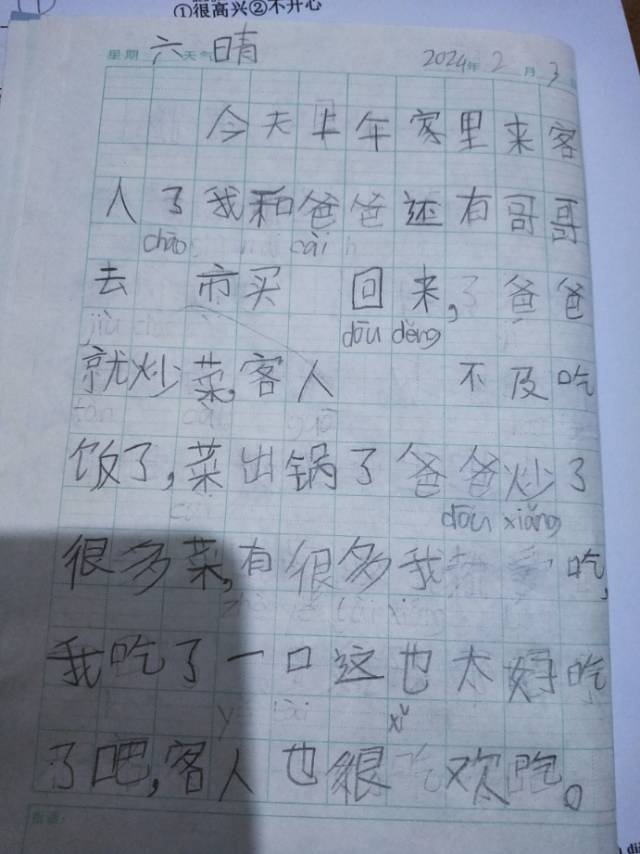 ①很高兴②不开心
星期 六 天气 晴 2024年 2 月 3
今天上午家里来客
人了我和爸爸还有哥哥
chāo cài
去 市买 回来,爸爸
dōu děng
就炒菜,客人 不及吃
饭了,菜出锅了爸爸炒了
dōu xiǎng
很多菜,有很多我 吃,
我吃了一口这也太好吃
xǐ
了吧,客人也很 欢吃。